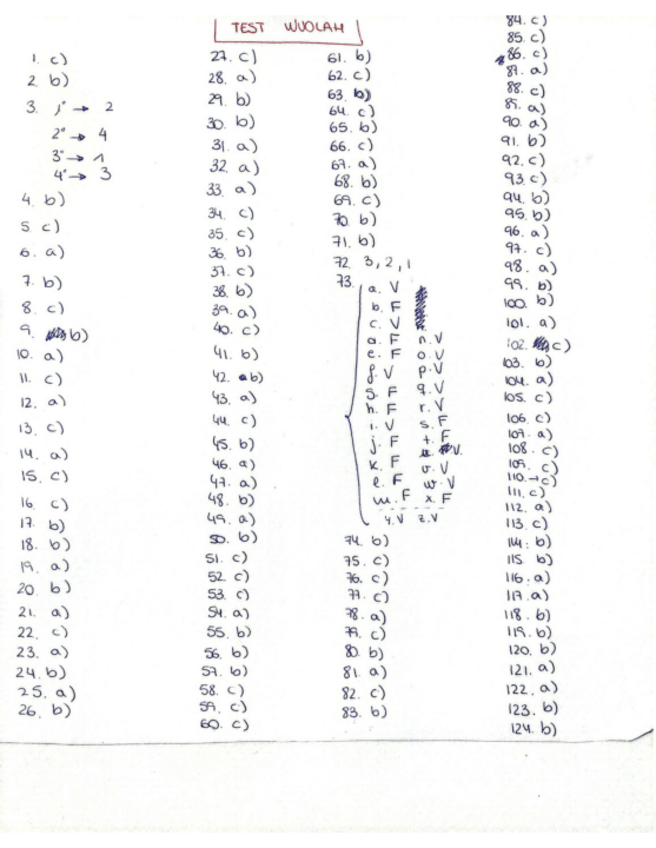 TEST WUOLAH
1. c)
2. b)
3. 1º → 2
2º → 4
3º → 1
4º → 3
4. b)
5. c)
6. a)
7. b)
8. c)
9. b)
10. a)
11. c)
12. a)
13. c)
14. a)
15. c)
16. c)
17. b)
18. b)
19. a)
20. b)
21. a)
22. c)
23. a)
24. b)
25. a)
26. b)
27. c)
28. a)
29. b)
30. b)
31. a)
32. a)
33. a)
34. c)
35. c)
36. b)
37. c)
38. b)
39. a)
40. c)
41. b)
42. b)
43. a)
44. c)
45. b)
46. a)
47. a)
48. b)
49. a)
50. b)
51. c)
52. c)
53. c)
54. a)
55. b)
56. b)
57. b)
58. c)
59. c)
60. c)
61. b)
62. c)
63. b)
64. c)
65. b)
66. c)
67. a)
68. b)
69. c)
70. b)
71. b)
72. 3, 2, 1
73.
a. V
b. F
c. V
d. F
e. F
f. V
g. F
h. F
i. V
j. F
k. F
l. F
m. F
n. V
o. V
p. V
q. V
r. V
s. F
t. F
u. V.
v. V
w. V
x. F
y. V z. V
74. b)
75. c)
76. c)
77. c)
78. a)
79. c)
80. b)
81. a)
82. c)
83. b)
84. c)
85. c)
86. c)
87. a)
88. c)
89. a)
90. a)
91. b)
92. c)
93. c)
94. b)
95. b)
96. a)
97. c)
98. a)
99. b)
100. b)
101. a)
102. c)
103. b)
104. a)
105. c)
106. c)
107. a)
108. c)
109. c)
110. → c)
111. c)
112. a)
113. c)
114. b)
115. b)
116. a)
117. a)
118. b)
119. b)
120. b)
121. a)
122. a)
123. b)
124. b)